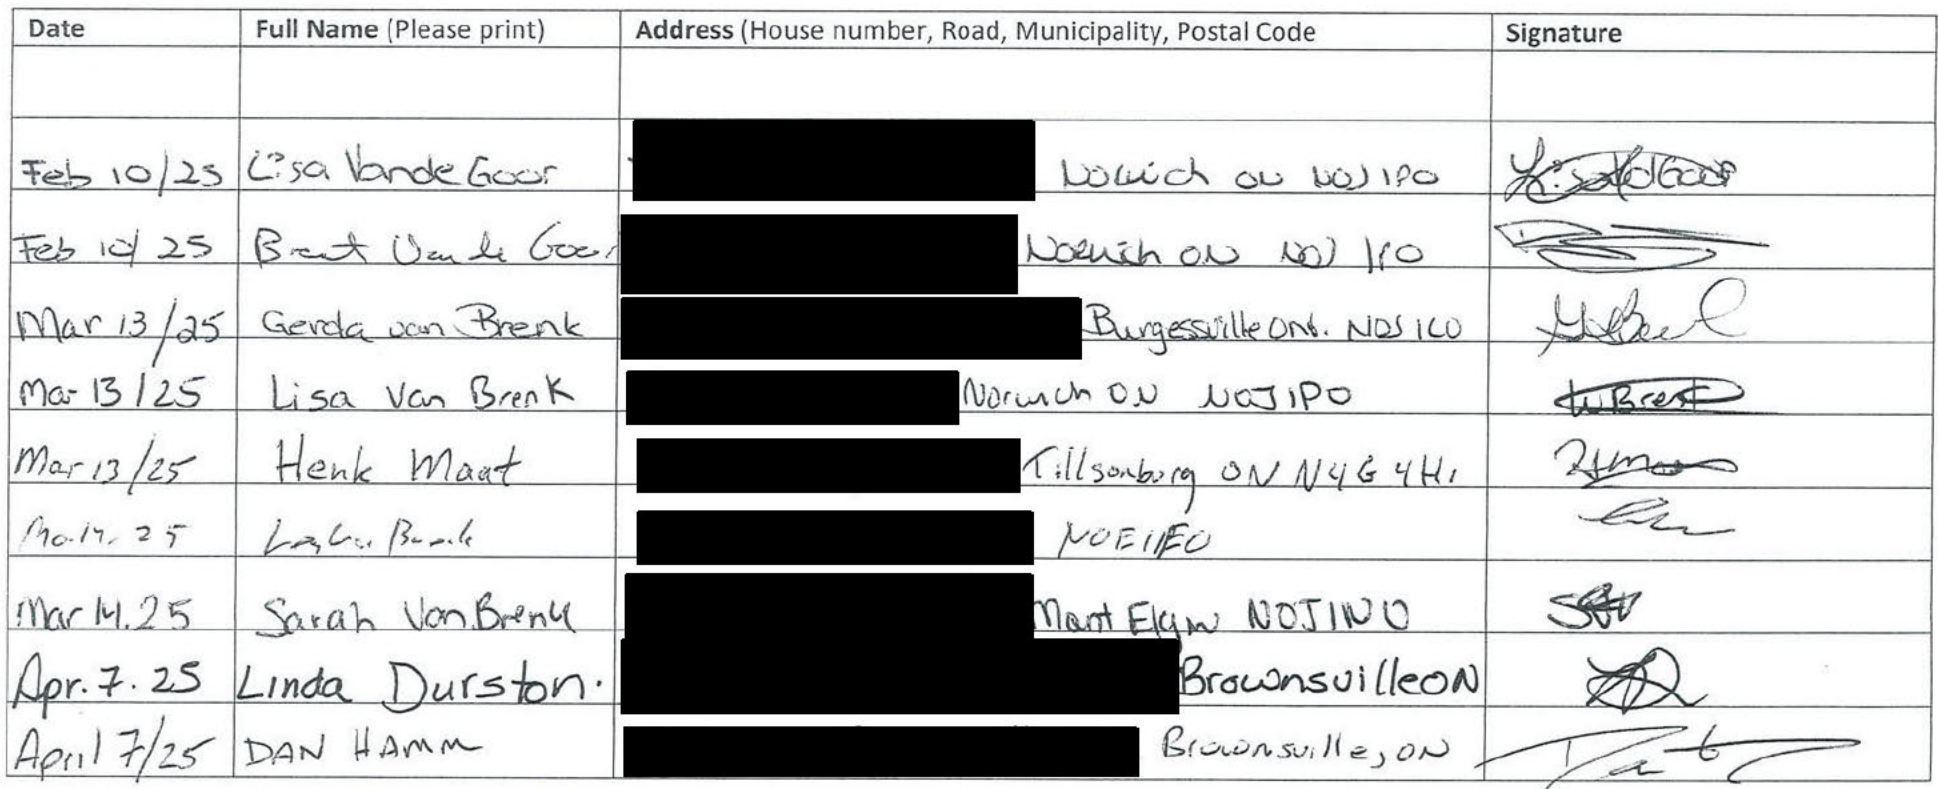 Date Full Name (Please print) Address (House number, Road, Municipality, Postal Code Signature
Feb 10/25 Lisa Vande Goor Norwich ON N0J 1P0
Feb 10/25 Brent Van de Goor Norwich ON N0J 1P0
Mar 13/25 Gerda van Brenk Burgessville Ont. N0J 1C0
Mar 13/25 Lisa Van Brenk Norwich ON N0J1P0
Mar 13/25 Henk Maat Tillsonburg ON N4G 4H1
25
Mar 14.25 Sarah VanBrenk Mount Elgin N0J1N0
Apr. 7. 25 Linda Durston. Brownsville ON
April 7/25 DAN HAMM Brownsville, ON